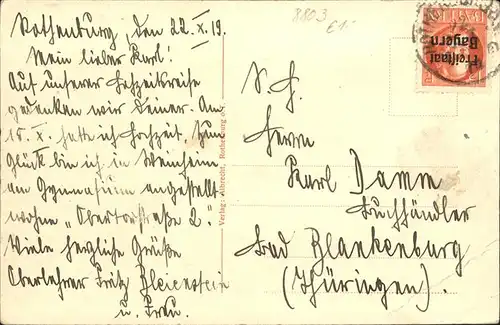 Rothenburg den 22.X.19.
Mein lieber Karl!
Auf unserer Hochzeitsreise
gedenken wir Deiner. Am
15.X. hatte ich Hochzeit. Zum
Glück bin ich in Weinheim
am Gymnasium angestellt
wohne „Obertorstraße 2."
Viele herzliche Grüße
Oberlehrer Fritz Bleienstein
u. Frau.
Verlag: Albrecht, Rothenburg o.T.
8803
€1.-
Freistaat
Bayern
S. H.
Herrn
Karl Damm
Buchhändler
Bad Blankenburg
(Thüringen).